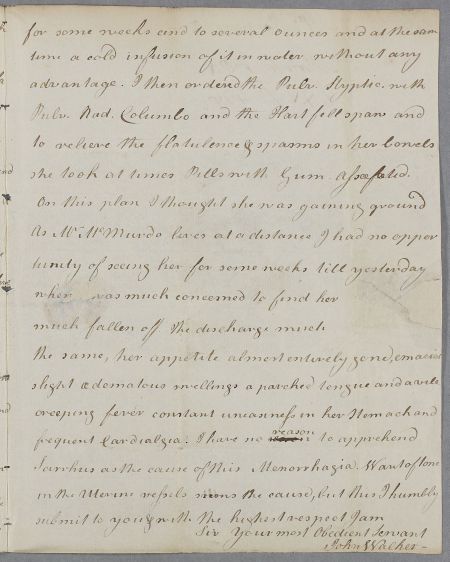 for some weeks and to several ounces and at the same
time a cold infusion of it in water without any
advantage. I then ordered the Pulv. Styptic. with
Pulv. Rad. Columbo and the Hartfell spaw and
to relieve the flatulence & spasms in her bowels
she took at times Pills with Gum. Assafetid.
On this plan I thought she was gaining ground
As Mrs. McMurdo lives at a distance I had no oppor
tunity of seeing her for some weeks till yesterday
when was much concerned to find her
much fallen off the discharge much
the same, her appetite almost entirely gone, emacia
slight œdematous swellings a parched tongue and a
creeping fever constant uneasiness in her Stomach and
frequent Cardialgia. I have no reason to apprehend
Scirrhus as the cause of this Menorrhagia. Want of tone
in the Uterine vessels the cause, but this I humbly
submit to you & with the highest respect I am
Sir Your most Obedient Servant
John Walker